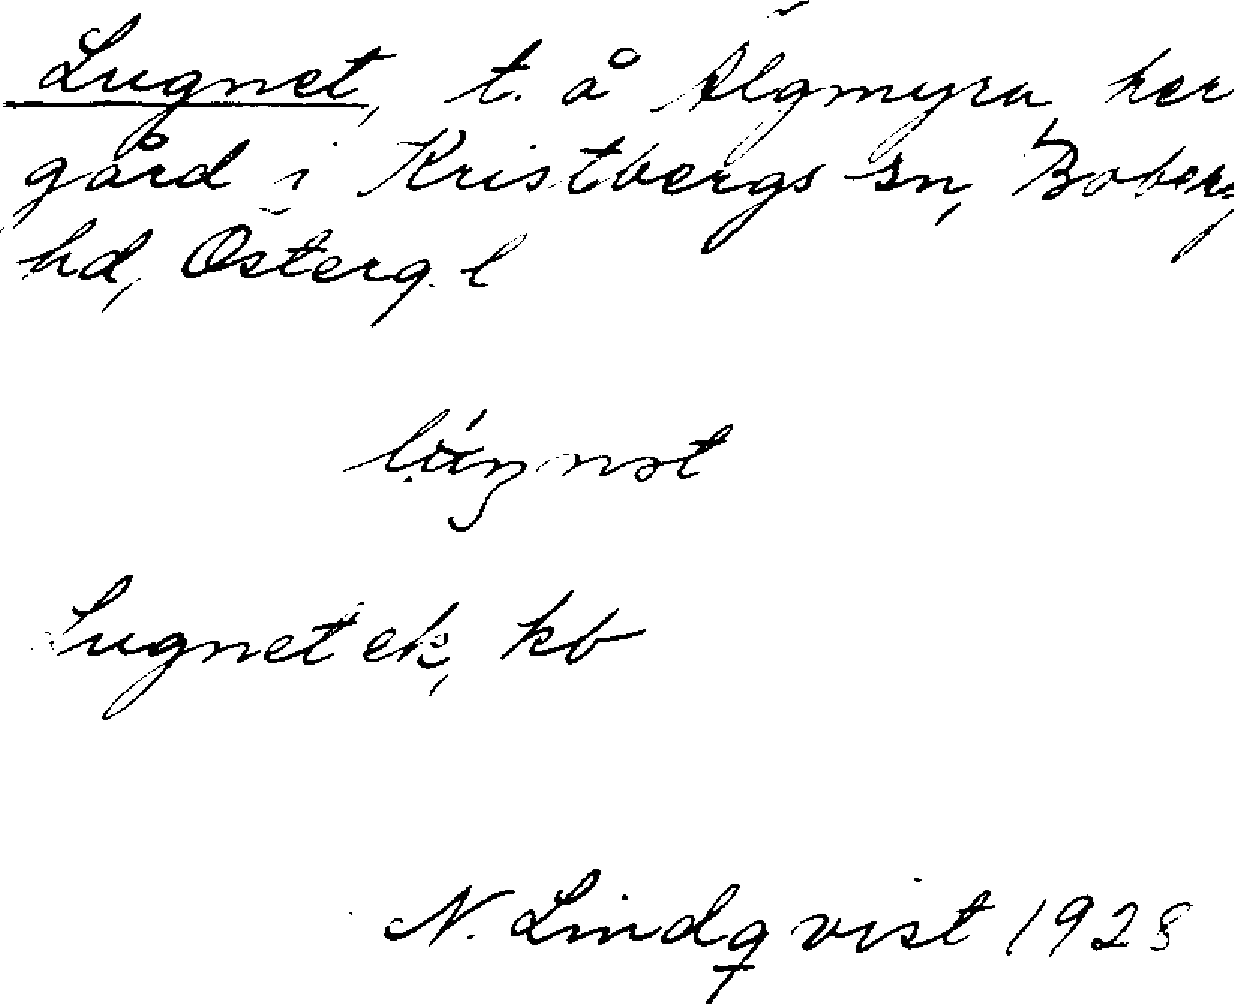 Lugnet, t. å Älgmyra her
gård i Kristbergs sn, Boberg
hd, Österg. l
Lugnet ek, kb
N. Lindqvist 1928